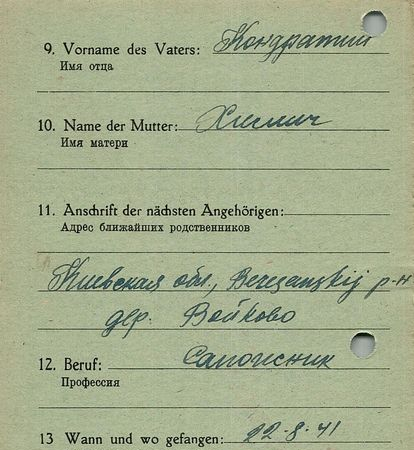 9. Vorname des Vaters: Кондратий
Имя отца
10. Name der Mutter: Хлемич
Имя матери
11. Anschrift der nächsten Angehörigen:
Адрес ближайших родственников
Киевская обл., Berezanskij р-н
дер. Войково
12. Beruf: Сапожник
Профессия
13 Wann und wo gefangen: 22-8-41